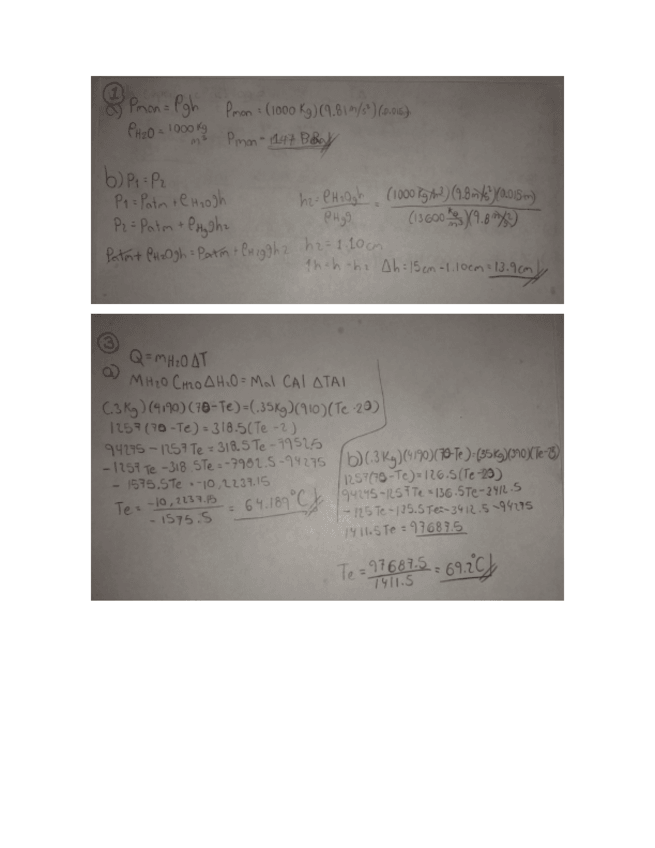 ①
a) Pman = ρgh Pman = (1000 Kg)(9.81m/s²)
ρH2O = 1000 Kg/m³ Pman =
b) P1 = P2
P1 = Patm + ρH2Ogh h2 = ρH2Ogh/ρHg = (1000 Kg/m³)(9.8m/s²)(0.015m)/(13600 Kg/m³)(9.8m/s²)
P2 = Patm + ρHggh2
Patm + ρH2Ogh = Patm + ρHggh2 h2 = 1.10cm
Δh = 15cm - 1.10cm = 13.9cm
③
Q = mH2O ΔT
a) MH2O CH2O ΔH2O = Mal CAl ΔTAl
(.3Kg)(4190)(70-Te)=(.35Kg)(910)(Te-20)
1257(70-Te) = 318.5(Te-2)
94275 - 1257Te = 318.5Te - 7952.5
-1257Te - 318.5Te = -7962.5 - 94275
- 1575.5Te = -10,2237.15
Te = -10,2237.15/-1575.5 = 64.189°C
b)(.3Kg)(4190)(70-Te)=(.35Kg)(390)(Te-25)
1257(75-Te) = 126.5(Te-20)
94275-1257Te = 136.5Te-3412.5
-125Te-125.5Te = -3412.5-94275
1411.5Te = 97687.5
Te = 97687.5/1411.5 = 69.2°C